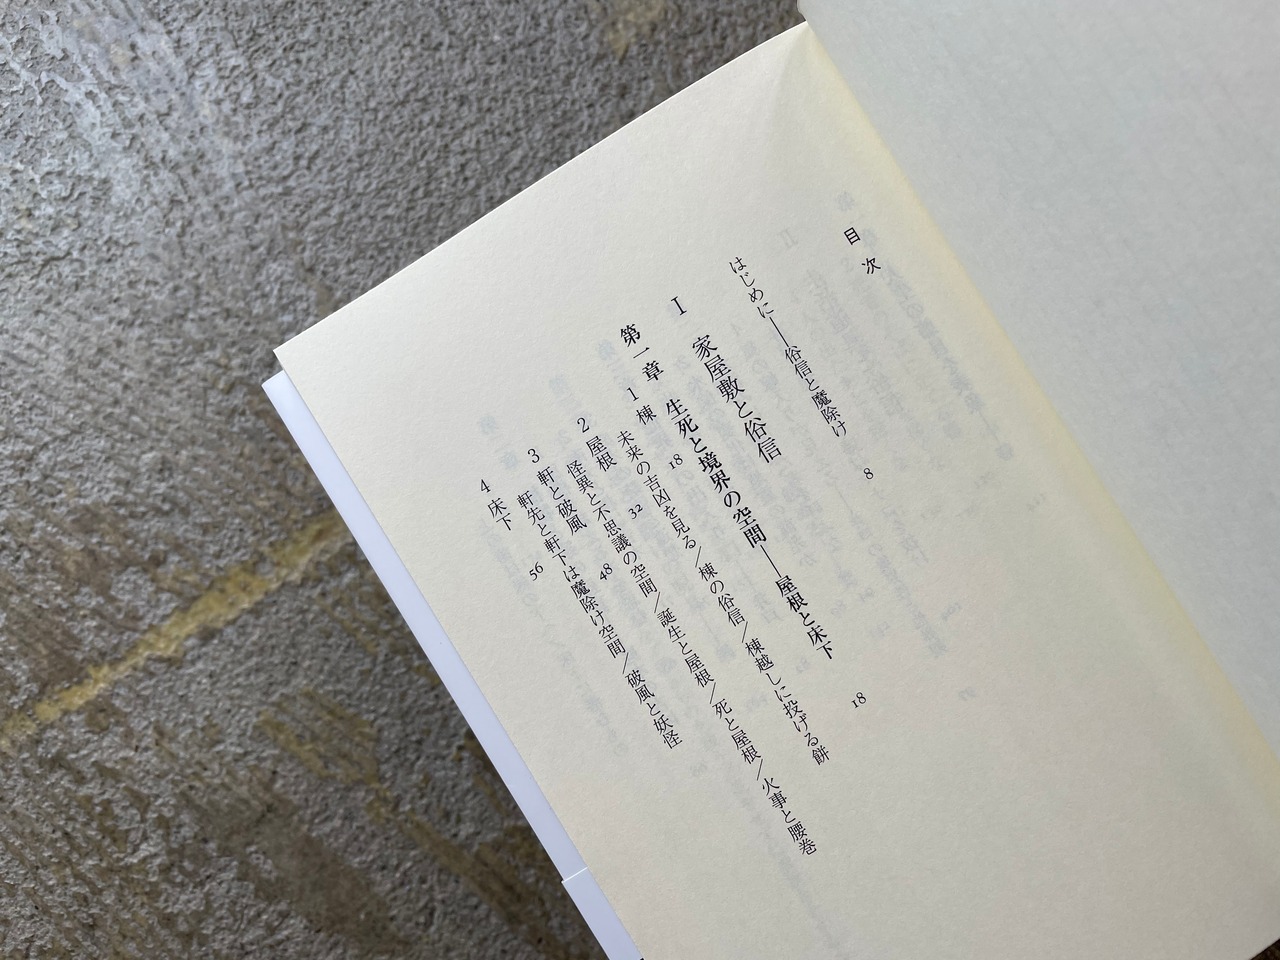 目次
はじめに——俗信と魔除け 8
I 家屋敷と俗信
第一章 生死と境界の空間——屋根と床下 18
1 棟 18
未来の吉凶を見る/棟の俗信/棟越しに投げる餅
2 屋根 32
怪異と不思議の空間/誕生と屋根/死と屋根/火事と腰巻
3 軒と破風 48
軒先と軒下は魔除け空間/破風と妖怪
4 床下 56